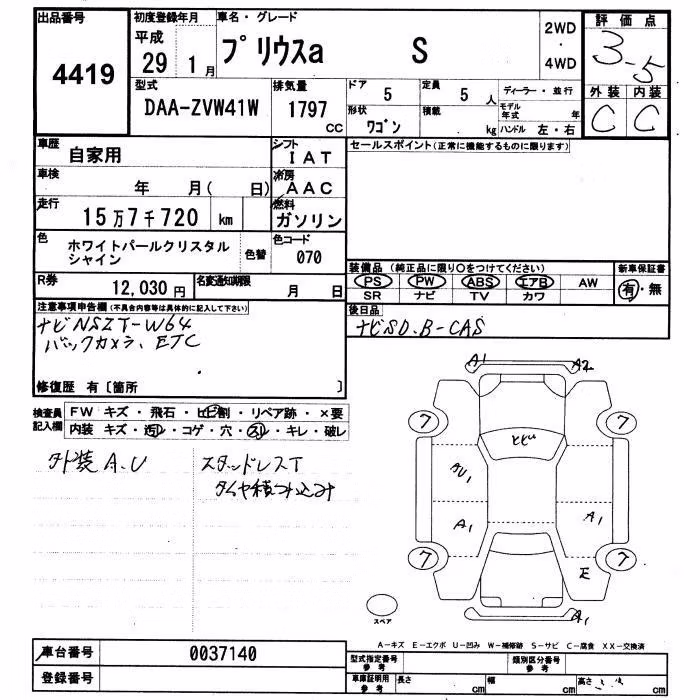 出品番号
4419
初度登録年月
平成
29 1月
車名・グレード
プリウスa S
2WD
・
4WD
評価点
3-5
外装 内装
C C
型式
DAA-ZVW41W
排気量
1797
CC
ドア
5
定員
5 人
ディーラー・並行
形状
ワゴン
積載
kg
モデル年式 年
ハンドル 左・右
車歴
自家用
シフト
IAT
セールスポイント(正常に機能するものに限ります)
車検
年 月( 日)
冷房
AAC
走行
15万7千720 km
燃料
ガソリン
色
ホワイトパールクリスタル
シャイン
色替
色コード
070
R券
12,030円
名変通知期限
月 日
装備品(純正品に限り○をつけてください)
新車保証書
PS PW ABS エアB AW
有・無
SR ナビ TV カワ
注意事項申告欄(不具合内容等は具体的に記入して下さい)
ナビNSZT-W64
バックカメラ、ETC
後日品
ナビSD、B-CAS
修復歴 有〔箇所 〕
検査員
記入欄
FW キズ・飛石・ヒビ割・リペア跡・×要
内装 キズ・汚レ・コゲ・穴・スレ・キレ・破レ
外装A.U
スタッドレスT
タイヤ積み込み
A1 A2
7 7
ヒビ
AU1
A1 A1
7 7
E
A1
スペア
A-キズ E-エクボ U-凹み W-補修跡 S-サビ C-腐食 XX-交換済
車台番号
0037140
登録番号
型式指定番号
参考
類別区分番号
参考
車庫証明用
参考
長さ cm
幅 cm
高さ cm